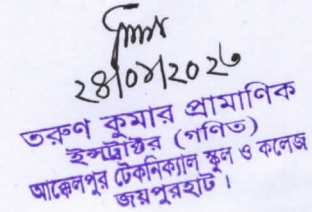 তরুণ কুমার প্রামাণিক
ইন্সট্রাক্টর (গণিত)
আক্কেলপুর টেকনিক্যাল স্কুল ও কলেজ
জয়পুরহাট।